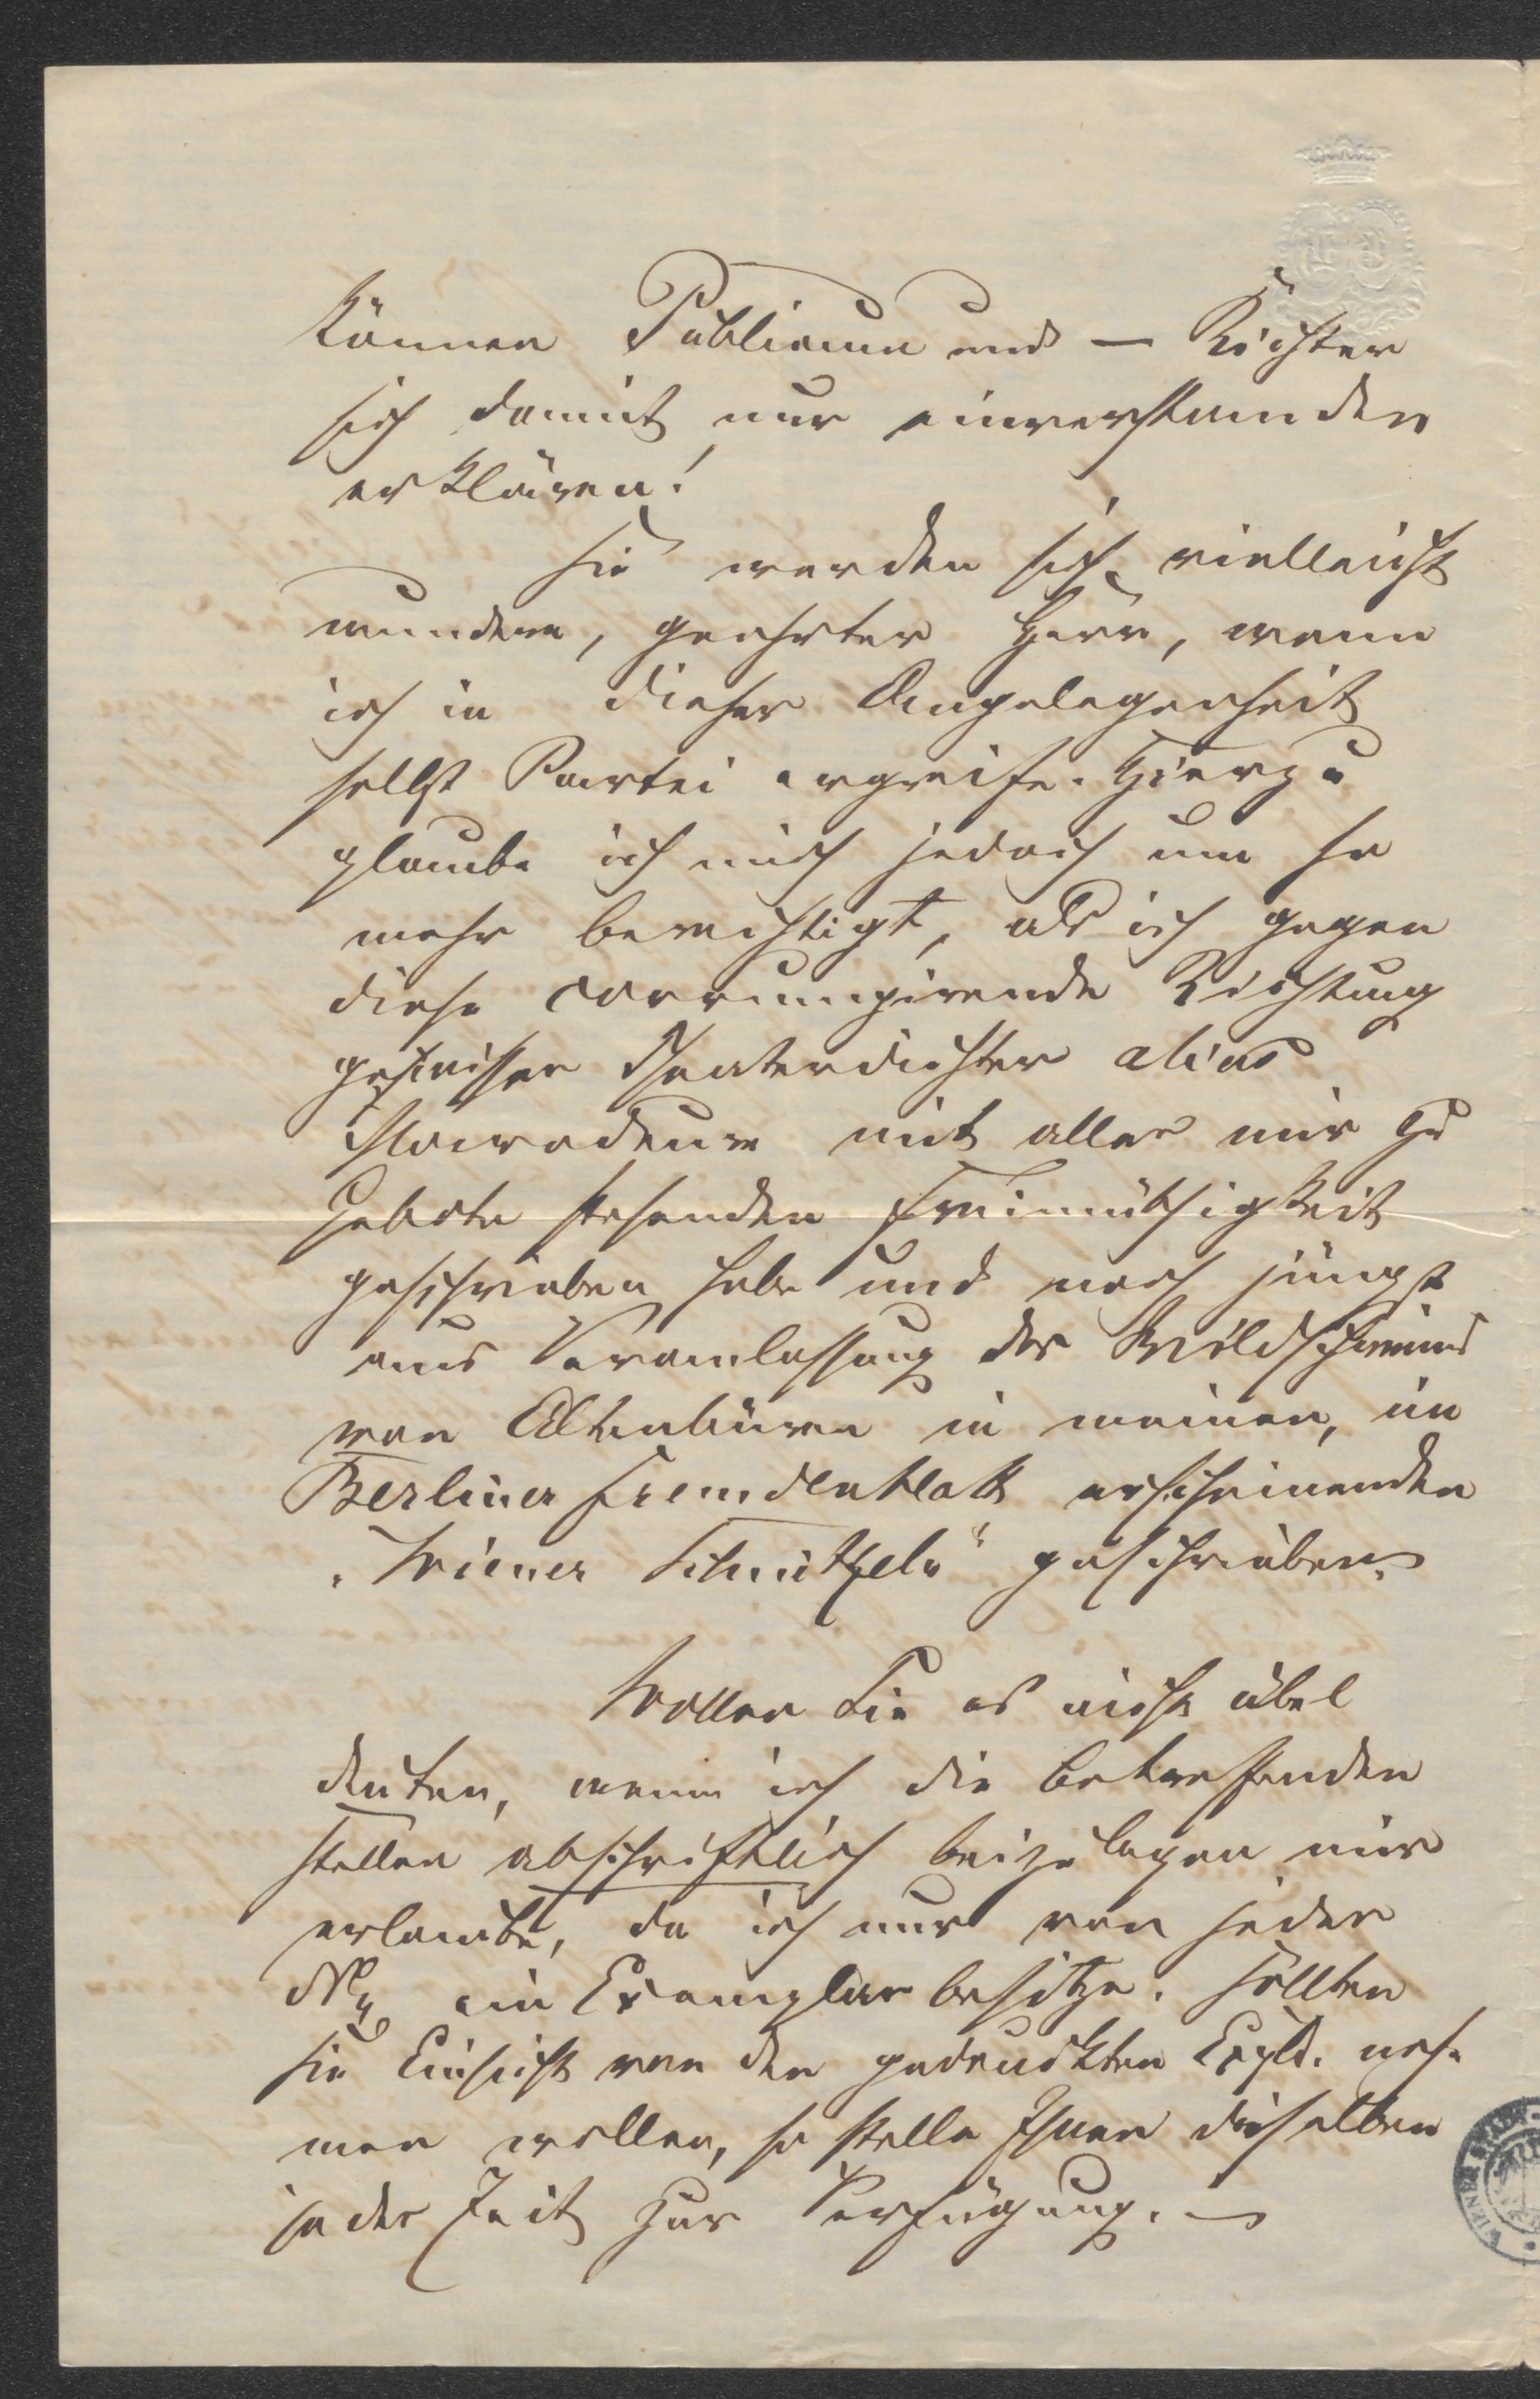 können Publicum und – Richter
sich damit nur einverstanden
erklären!
Sie werden sich vielleicht
wundern, geehrter Herr, wenn
ich in dieser Angelegenheit
selbst Partei ergreife. Hierzu
glaube ich mich jedoch um so
mehr berechtigt, als ich gegen
diese corrumpirende Richtung
gewisser Theaterdichter alias
Maraudeure mit aller mir zu
Gebote stehenden Freimüthigkeit
geschrieben habe und noch jüngst
aus Veranlassung des Wildschweins
von Altenbüren in meinen, im
Berliner Fremdenblatt erscheinenden
„Wiener Schnitzeln“ geschrieben.
Wollen Sie es nicht übel
deuten, wenn ich die betreffenden
Stellen abschriftlich beizulegen mir
erlaube, da ich nur von jeder
No ein Exemplar besitze. Sollten
Sie Einsicht von den gedruckten Expl. neh-
men wollen, so stelle Ihnen dieselben
jeder Zeit zur Verfügung. –